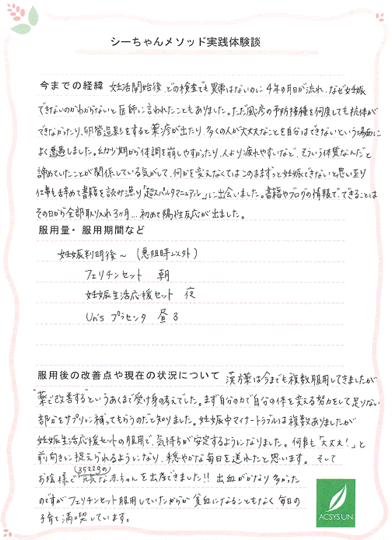 シーちゃんメソッド実践体験談
今までの経緯 妊活開始後、どの検査でも異常はないのに4年の月日が流れ、なぜ妊娠
できないのかわからないと医師に言われたこともありました。ただ風疹の予防接種を何度しても抗体が
できなかったり、卵管造影をすると薬疹が出たり、多くの人が大丈夫なことを自分はできないという場面に
よく遭遇しました。幼少期から体調を崩しやすかったり、人より疲れやすいなど、そういう体質なんだと
諦めていたことが関係している気がして、何かを変えなくてはこのままずっと妊娠できないと思い至り
仕事も辞めて書籍を読み漁り「超スパルタマニュアル」に出会いました。書籍やブログの情報で、できることは
その日から全部取り入れ3ヶ月…初めて陽性反応が出ました。
服用量・服用期間など
妊娠判明後〜(悪阻時以外)
フェリチンセット 朝
妊娠生活応援セット 夜
Un's プラセンタ 昼
服用後の改善点や現在の状況について 漢方薬は今までも複数服用してきましたが
"薬で改善する"というあくまで受け身の考えでした。まず自分の力で自分の体を変える努力をして足りない
部分をサプリに補ってもらうのだと知りました。妊娠中マイナートラブルは複数ありましたが
妊娠生活応援セットの服用で、気持ちが安定するようになりました。何事も「大丈夫!」と
前向きに捉えられるようになり、穏やかな毎日を送れたと思います。そして
お陰様で元気な赤ちゃんを出産できました!! 出血がかなり多かった
のですがフェリチンセット服用していたからか貧血になることもなく毎日の
子育て満喫しています。
ACSYSUN